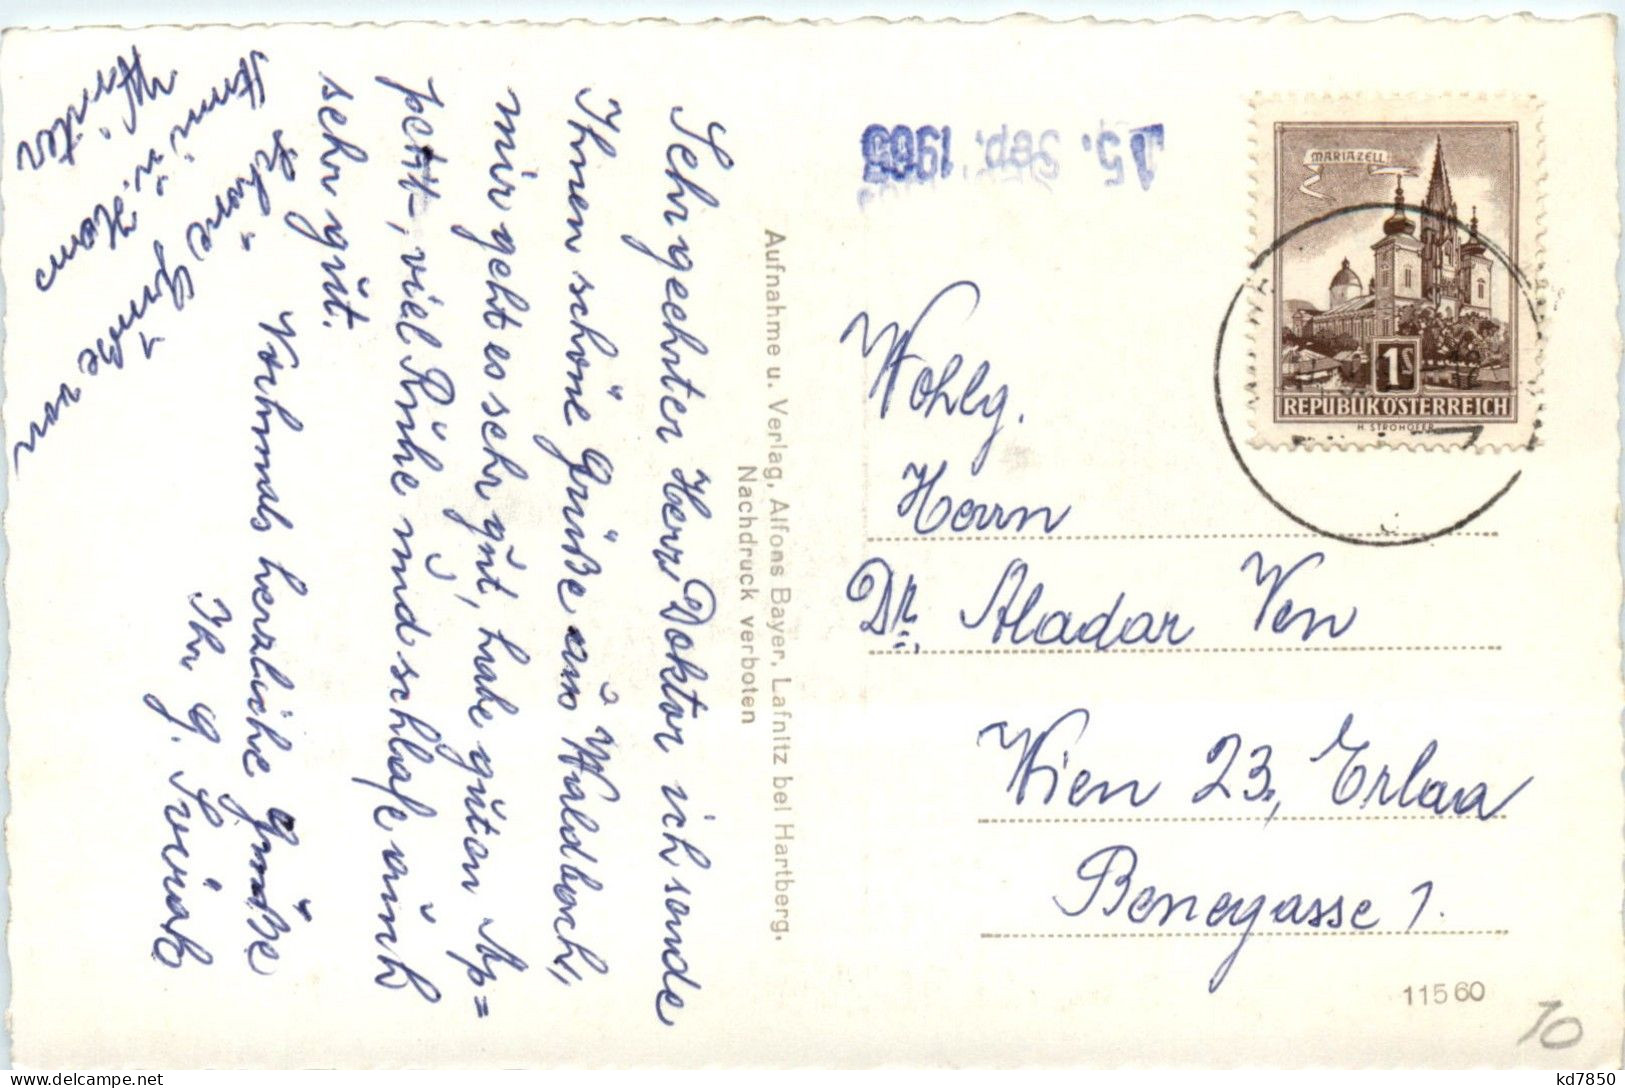 Sehr geehrter Herr Doktor ich sende
Ihnen schöne Grüße aus Waldbach,
mir geht es sehr gut, habe guten Ap=
petit, viel Ruhe und schlafe auch
sehr gut.
Nochmals herzliche Grüße
Ihr G.
Schöne Grüße von
Anni u. Hans
Aufnahme u. Verlag, Alfons Bayer, Lafnitz bei Hartberg,
Nachdruck verboten
15. Sep. 1965
MARIAZELL
1S
REPUBLIK ÖSTERREICH
H. STROHOFER
Wohlg.
Herrn
Dr. Aladar Ven
Wien 23, Erlaa
Benegasse 1.
11560
10
kd7850